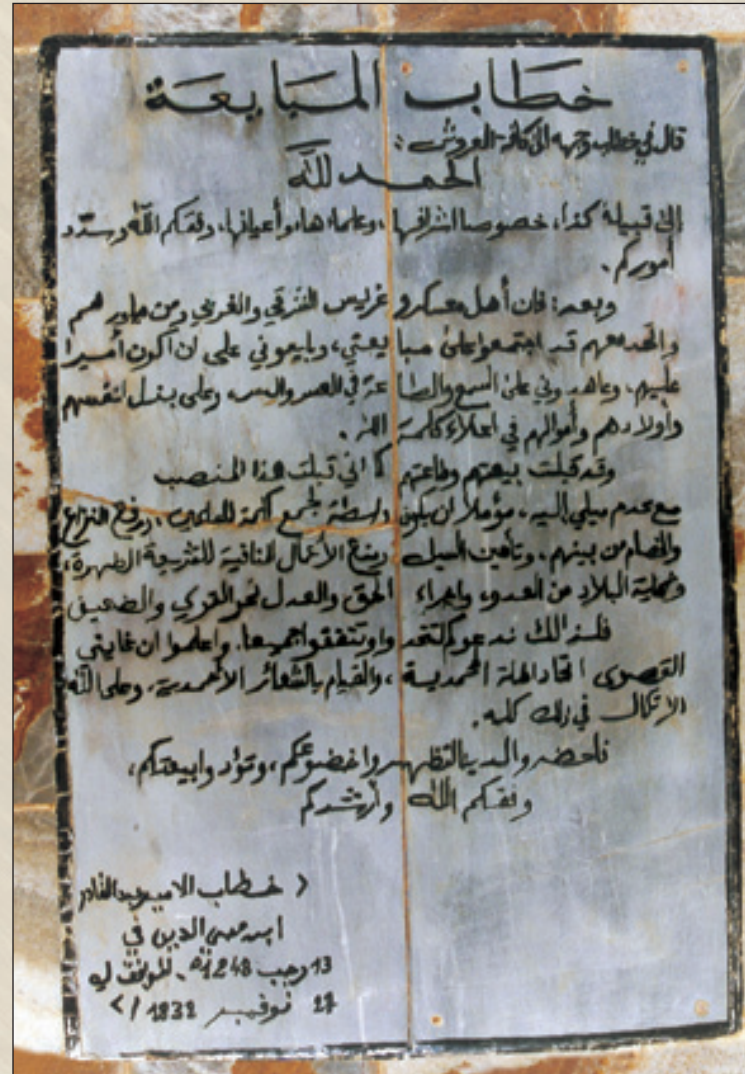 خطاب المبايعة
قال في خطاب وجهه إلى كافة العروش:
الحمد لله
إلى قبيلة كذا، خصوصا اشرافها، وعلماءها، وأعيانها، وفقكم الله وسدد
أموركم.
وبعد: فان أهل معسكر و غريس الشرقي والغربي ومن جاورهم
واتحد معهم قد اجتمعوا على مبا يعتي، وبايعوني على ان أكون أميرا
عليهم، وعاهدوني على السمع والطا عة في العسر واليسر، وعلى بذل انفسهم
وأولادهم وأموالهم في اعلاء كلمة الله.
وقد قبلت بيعتهم وطاعتهم كما اني قبلت هذا المنصب
مع عدم ميلي إليه، مؤملا ان يكون واسطة لجمع كلمة المسلمين، ورفع النزاع
والخصام من بينهم، وتأمين السبل ومنع الأعمال المنافية للشريعة المطهرة،
وحماية البلاد من العدو، واجراء الحق والعدل نحو القوي والضعيف
فلذالك ندعوكم لتتحدوا وتتفقوا جميعا. واعلموا ان غايتي
القصوى اتحاد الملة المحمدية، والقيام بالشعائر الأحمدية، وعلى الله
الاتكال في ذلك كله.
فاحضروا لدينا لتظهروا خضوعكم، وتؤدوا بيعتكم،
وفقكم الله وأرشدكم
( خطاب الامير عبد القادر
ابن محي الدين في
13 رجب 1248 هـ. الموافق لـ
27 نوفمبر 1832 /)